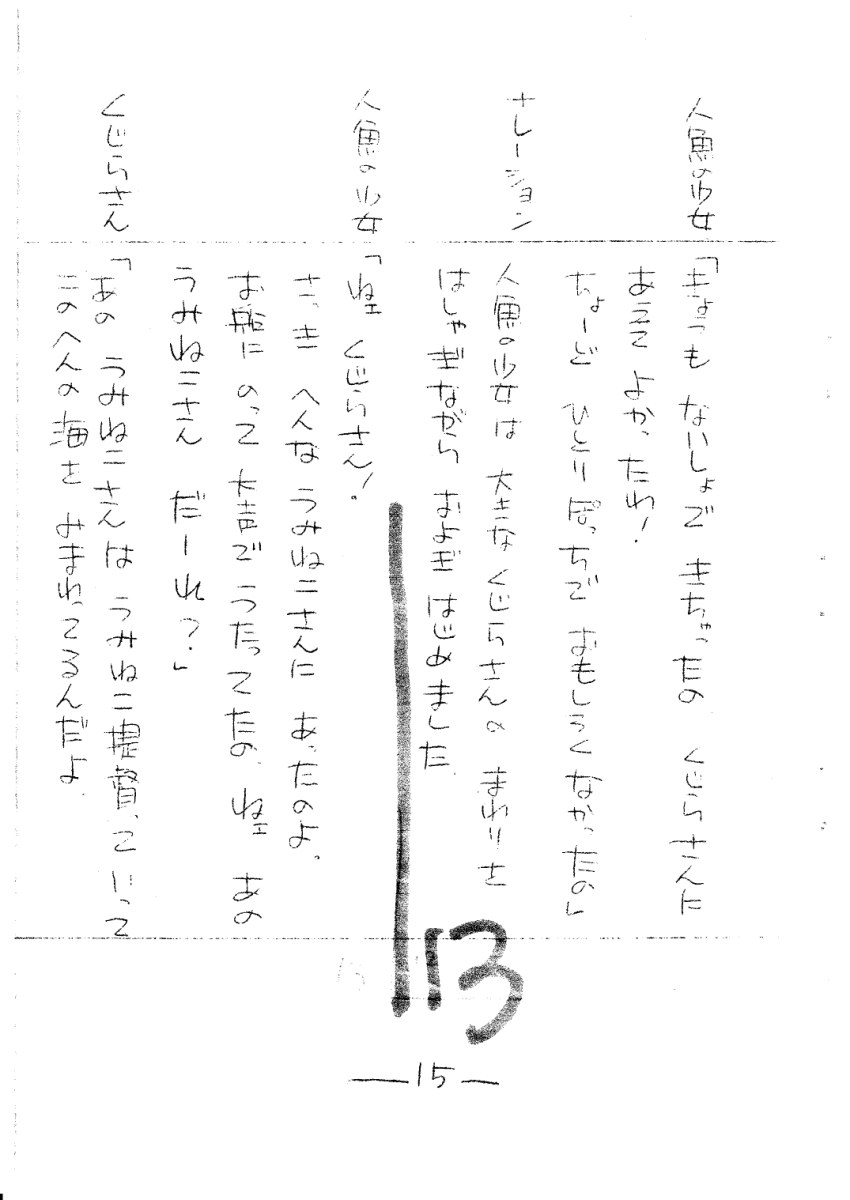 人魚の少女「きょうも ないしょで きちゃったの くじらさんに
あえて よかったわ!
ちょーど ひとりぽっちで おもしろくなかったの」
ナレーション 人魚の少女は 大きなくじらさんの まわりを
はしゃぎながら およぎはじめました
人魚の少女「ねェ くじらさん!
さっき へんな うみねこさんに あったのよ、
お船に のって 大声で うたってたの、ねェ あの
うみねこさん だーれ?」
くじらさん「あの うみねこさんは うみねこ提督っていって
このへんの海を みまわってるんだよ
13
—15—